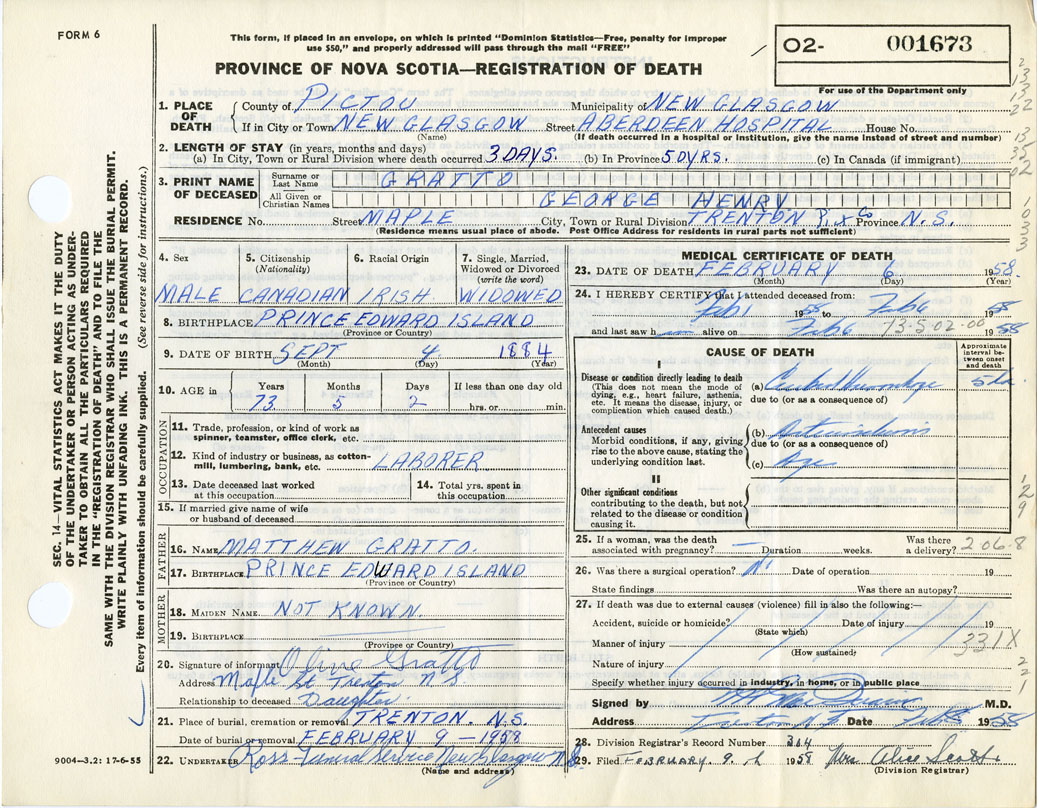 FORM 6
This form, if placed in an envelope, on which is printed "Dominion Statistics—Free, penalty for improper
use $50," and properly addressed will pass through the mail "FREE"
PROVINCE OF NOVA SCOTIA—REGISTRATION OF DEATH
02- 001673
For use of the Department only
1. PLACE OF DEATH
County of PICTOU Municipality of NEW GLASGOW
If in City or Town NEW GLASGOW Street ABERDEEN HOSPITAL House No.
(Name) (If death occurred in a hospital or institution, give the name instead of street and number)
2. LENGTH OF STAY (in years, months and days)
(a) In City, Town or Rural Division where death occurred 3 DAYS. (b) In Province 50 YRS. (c) In Canada (if immigrant)
3. PRINT NAME OF DECEASED
Surname or Last Name GRATTO
All Given or Christian Names GEORGE HENRY
RESIDENCE No. Street MAPLE City, Town or Rural Division TRENTON Pix Co Province N.S.
(Residence means usual place of abode. Post Office Address for residents in rural parts not sufficient)
4. Sex 5. Citizenship (Nationality) 6. Racial Origin 7. Single, Married, Widowed or Divorced (write the word)
MALE CANADIAN IRISH WIDOWED
8. BIRTHPLACE PRINCE EDWARD ISLAND
(Province or Country)
9. DATE OF BIRTH SEPT 4 1884
(Month) (Day) (Year)
10. AGE in Years Months Days If less than one day old
73 5 2 hrs. or min.
OCCUPATION
11. Trade, profession, or kind of work as
spinner, teamster, office clerk, etc.
12. Kind of industry or business, as cotton-
mill, lumbering, bank, etc. LABORER
13. Date deceased last worked
at this occupation
14. Total yrs. spent in
this occupation
15. If married give name of wife
or husband of deceased
FATHER
16. NAME MATTHEW GRATTO.
17. BIRTHPLACE PRINCE EDWARD ISLAND
(Province or Country)
MOTHER
18. MAIDEN NAME NOT KNOWN.
19. BIRTHPLACE
(Province or Country)
20. Signature of informant Olive Gratto
Address Maple St Trenton N.S.
Relationship to deceased Daughter
21. Place of burial, cremation or removal TRENTON. N.S.
Date of burial or removal FEBRUARY 9 - 1958
22. UNDERTAKER Ross Funeral Service New Glasgow N.S.
(Name and address)
MEDICAL CERTIFICATE OF DEATH
23. DATE OF DEATH FEBRUARY 6 1958.
(Month) (Day) (Year)
24. I HEREBY CERTIFY that I attended deceased from:
Feb 1 1958 to Feb 6 1958
and last saw h alive on Feb 6 1958
CAUSE OF DEATH
Approximate interval between onset and death
I
Disease or condition directly leading to death
(This does not mean the mode of
dying, e.g., heart failure, asthenia,
etc. It means the disease, injury, or
complication which caused death.)
(a) Cerebral Hemorrhage
due to (or as a consequence of)
Antecedent causes
Morbid conditions, if any, giving
rise to the above cause, stating the
underlying condition last.
(b)
due to (or as a consequence of)
(c) Age
II
Other significant conditions
contributing to the death, but not
related to the disease or condition
causing it.
25. If a woman, was the death
associated with pregnancy? — Duration weeks. Was there
a delivery? 206-8
26. Was there a surgical operation? No Date of operation 19
State findings Was there an autopsy?
27. If death was due to external causes (violence) fill in also the following:—
Accident, suicide or homicide? Date of injury 19
(State which)
Manner of injury 331X
(How sustained)
Nature of injury
Specify whether injury occurred in industry, in home, or in public place
Signed by M.D.
Address Trenton N.S. Date Feb 8 1958
28. Division Registrar's Record Number 364
29. Filed FEBRUARY 9. th 1958 Mrs Alice Scott
(Division Registrar)
SEC. 14—VITAL STATISTICS ACT MAKES IT THE DUTY
OF THE UNDERTAKER OR PERSON ACTING AS UNDER-
TAKER TO OBTAIN ALL THE PARTICULARS REQUIRED
IN THE "REGISTRATION OF DEATH" AND TO FILE THE
SAME WITH THE DIVISION REGISTRAR WHO SHALL ISSUE THE BURIAL PERMIT.
WRITE PLAINLY WITH UNFADING INK. THIS IS A PERMANENT RECORD.
Every item of information should be carefully supplied. (See reverse side for instructions.)
9004—3.2: 17-6-55